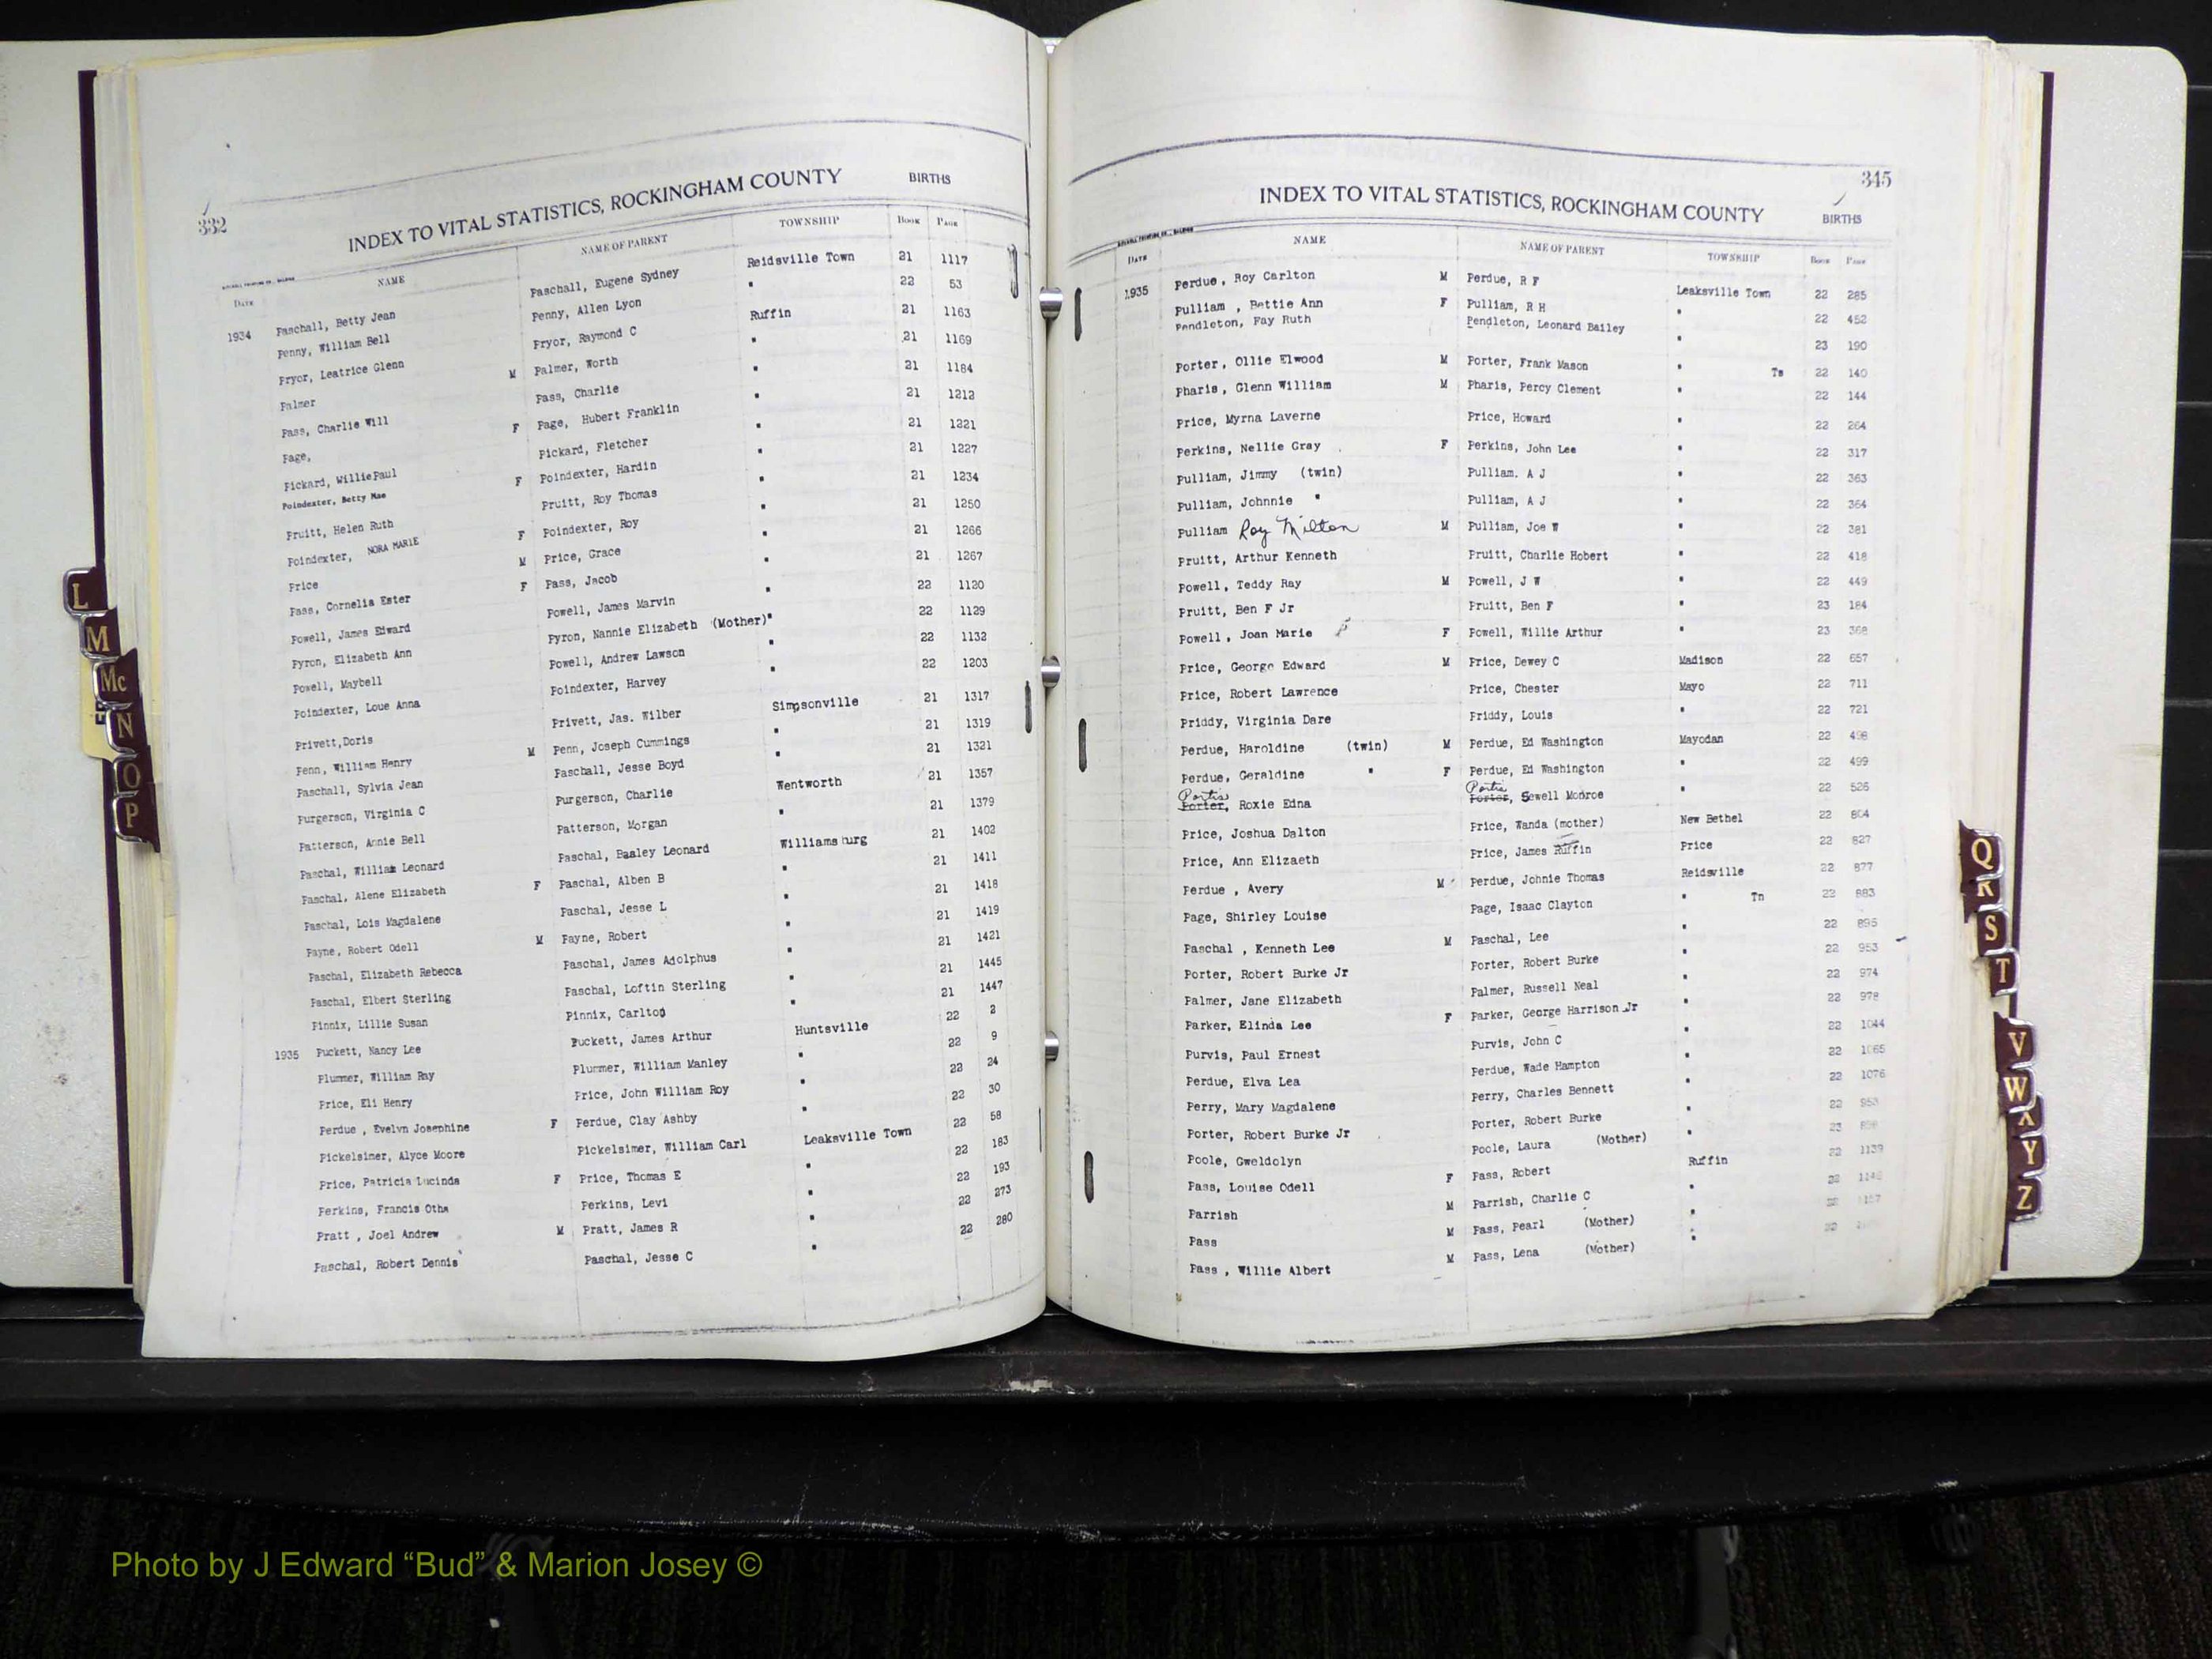 332
INDEX TO VITAL STATISTICS, ROCKINGHAM COUNTY BIRTHS
DATE NAME NAME OF PARENT TOWNSHIP BOOK PAGE
1934 Paschall, Betty Jean Paschall, Eugene Sydney Reidsville Town 21 1117
Penny, William Bell Penny, Allen Lyon " 22 53
Pryor, Leatrice Glenn Pryor, Raymond C Ruffin 21 1163
Palmer M Palmer, Worth " 21 1169
Pass, Charlie Will Pass, Charlie " 21 1184
Page, F Page, Hubert Franklin " 21 1212
Pickard, Willie Paul Pickard, Fletcher " 21 1221
Poindexter, Betty Mae F Poindexter, Hardin " 21 1227
Pruitt, Helen Ruth Pruitt, Roy Thomas " 21 1234
Poindexter, NORA MARIE F Poindexter, Roy " 21 1250
Price M Price, Grace " 21 1266
Pass, Cornelia Ester F Pass, Jacob " 21 1267
Powell, James Edward Powell, James Marvin " 22 1120
Pyron, Elizabeth Ann Pyron, Nannie Elizabeth (Mother) " 22 1129
Powell, Maybell Powell, Andrew Lawson " 22 1132
Poindexter, Loue Anna Poindexter, Harvey " 22 1203
Privett, Doris Privett, Jas. Wilber Simpsonville 21 1317
Penn, William Henry M Penn, Joseph Cummings " 21 1319
Paschall, Sylvia Jean Paschall, Jesse Boyd " 21 1321
Purgerson, Virginia C Purgerson, Charlie Wentworth 21 1357
Patterson, Annie Bell Patterson, Morgan " 21 1379
Paschal, William Leonard Paschal, Basley Leonard Williamsburg 21 1402
Paschal, Alene Elizabeth F Paschal, Alben B " 21 1411
Paschal, Lois Magdalene Paschal, Jesse L " 21 1418
Payne, Robert Odell M Payne, Robert " 21 1419
Paschal, Elizabeth Rebecca Paschal, James Adolphus " 21 1421
Paschal, Elbert Sterling Paschal, Loftin Sterling " 21 1445
Pinnix, Lillie Susan Pinnix, Carlton " 21 1447
1935 Puckett, Nancy Lee Puckett, James Arthur Huntsville 22 2
Plummer, William Ray Plummer, William Manley " 22 9
Price, Eli Henry Price, John William Roy " 22 24
Perdue , Evelyn Josephine F Perdue, Clay Ashby " 22 30
Pickelsimer, Alyce Moore Pickelsimer, William Carl Leaksville Town 22 58
Price, Patricia Lucinda F Price, Thomas E " 22 183
Perkins, Francis Otha Perkins, Levi " 22 193
Pratt , Joel Andrew M Pratt, James R " 22 273
Paschal, Robert Dennis Paschal, Jesse C " 22 280
345
INDEX TO VITAL STATISTICS, ROCKINGHAM COUNTY BIRTHS
DATE NAME NAME OF PARENT TOWNSHIP BOOK PAGE
1935 Perdue, Roy Carlton M Perdue, R F Leaksville Town 22 285
Pulliam , Bettie Ann F Pulliam, R H " 22 452
Pendleton, Fay Ruth Pendleton, Leonard Bailey " 23 190
Porter, Ollie Elwood M Porter, Frank Mason " Ts 22 140
Pharis, Glenn William M Pharis, Percy Clement " 22 144
Price, Myrna Laverne Price, Howard " 22 264
Perkins, Nellie Gray F Perkins, John Lee " 22 317
Pulliam, Jimmy (twin) Pulliam. A J " 22 363
Pulliam, Johnnie " Pulliam, A J " 22 364
Pulliam Roy Milton M Pulliam, Joe W " 22 381
Pruitt, Arthur Kenneth Pruitt, Charlie Hobert " 22 418
Powell, Teddy Ray M Powell, J W " 22 449
Pruitt, Ben F Jr Pruitt, Ben F " 23 184
Powell , Joan Marie F Powell, Willie Arthur " 23 368
Price, George Edward M Price, Dewey C Madison 22 657
Price, Robert Lawrence Price, Chester Mayo 22 711
Priddy, Virginia Dare Priddy, Louis " 22 721
Perdue, Haroldine (twin) M Perdue, Ed Washington Mayodan 22 498
Perdue, Geraldine " F Perdue, Ed Washington " 22 499
Portis Portis
Porter, Roxie Edna Porter, Sewell Monroe " 22 526
Price, Joshua Dalton Price, Wanda (mother) New Bethel 22 804
Price, Ann Elizaeth Price, James Ruffin Price 22 827
Perdue , Avery M Perdue, Johnie Thomas Reidsville 22 877
Page, Shirley Louise Page, Isaac Clayton " Tn 22 883
Paschal , Kenneth Lee M Paschal, Lee " 22 895
Porter, Robert Burke Jr Porter, Robert Burke " 22 953
Palmer, Jane Elizabeth Palmer, Russell Neal " 22 974
Parker, Elinda Lee F Parker, George Harrison Jr " 22 978
Purvis, Paul Ernest Purvis, John C " 22 1044
Perdue, Elva Lea Perdue, Wade Hampton " 22 1065
Perry, Mary Magdalene Perry, Charles Bennett " 22 1076
Porter, Robert Burke Jr Porter, Robert Burke " 22 953
Poole, Gweldolyn Poole, Laura (Mother) " 23
Pass, Louise Odell F Pass, Robert Ruffin 22 1139
Parrish M Parrish, Charlie C " 22
Pass M Pass, Pearl (Mother) " 22
Pass , Willie Albert M Pass, Lena (Mother) " 22
L
M
Mc
N
O
P
Q
R
S
T
V
W
X
Y
Z
Photo by J Edward “Bud” & Marion Josey ©